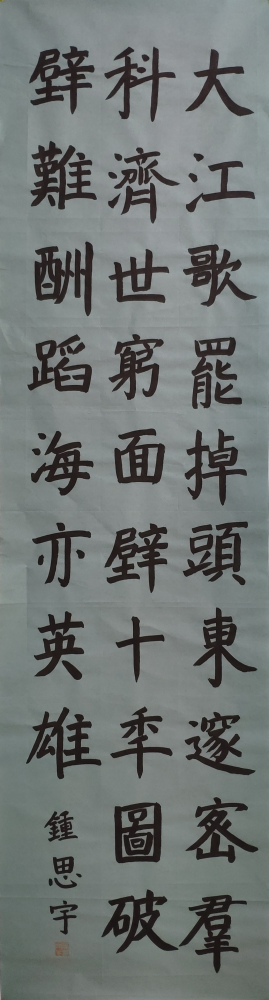 大江歌罷掉頭東邃密羣
科濟世窮面壁十年圖破
壁難酬蹈海亦英雄
鍾思宇